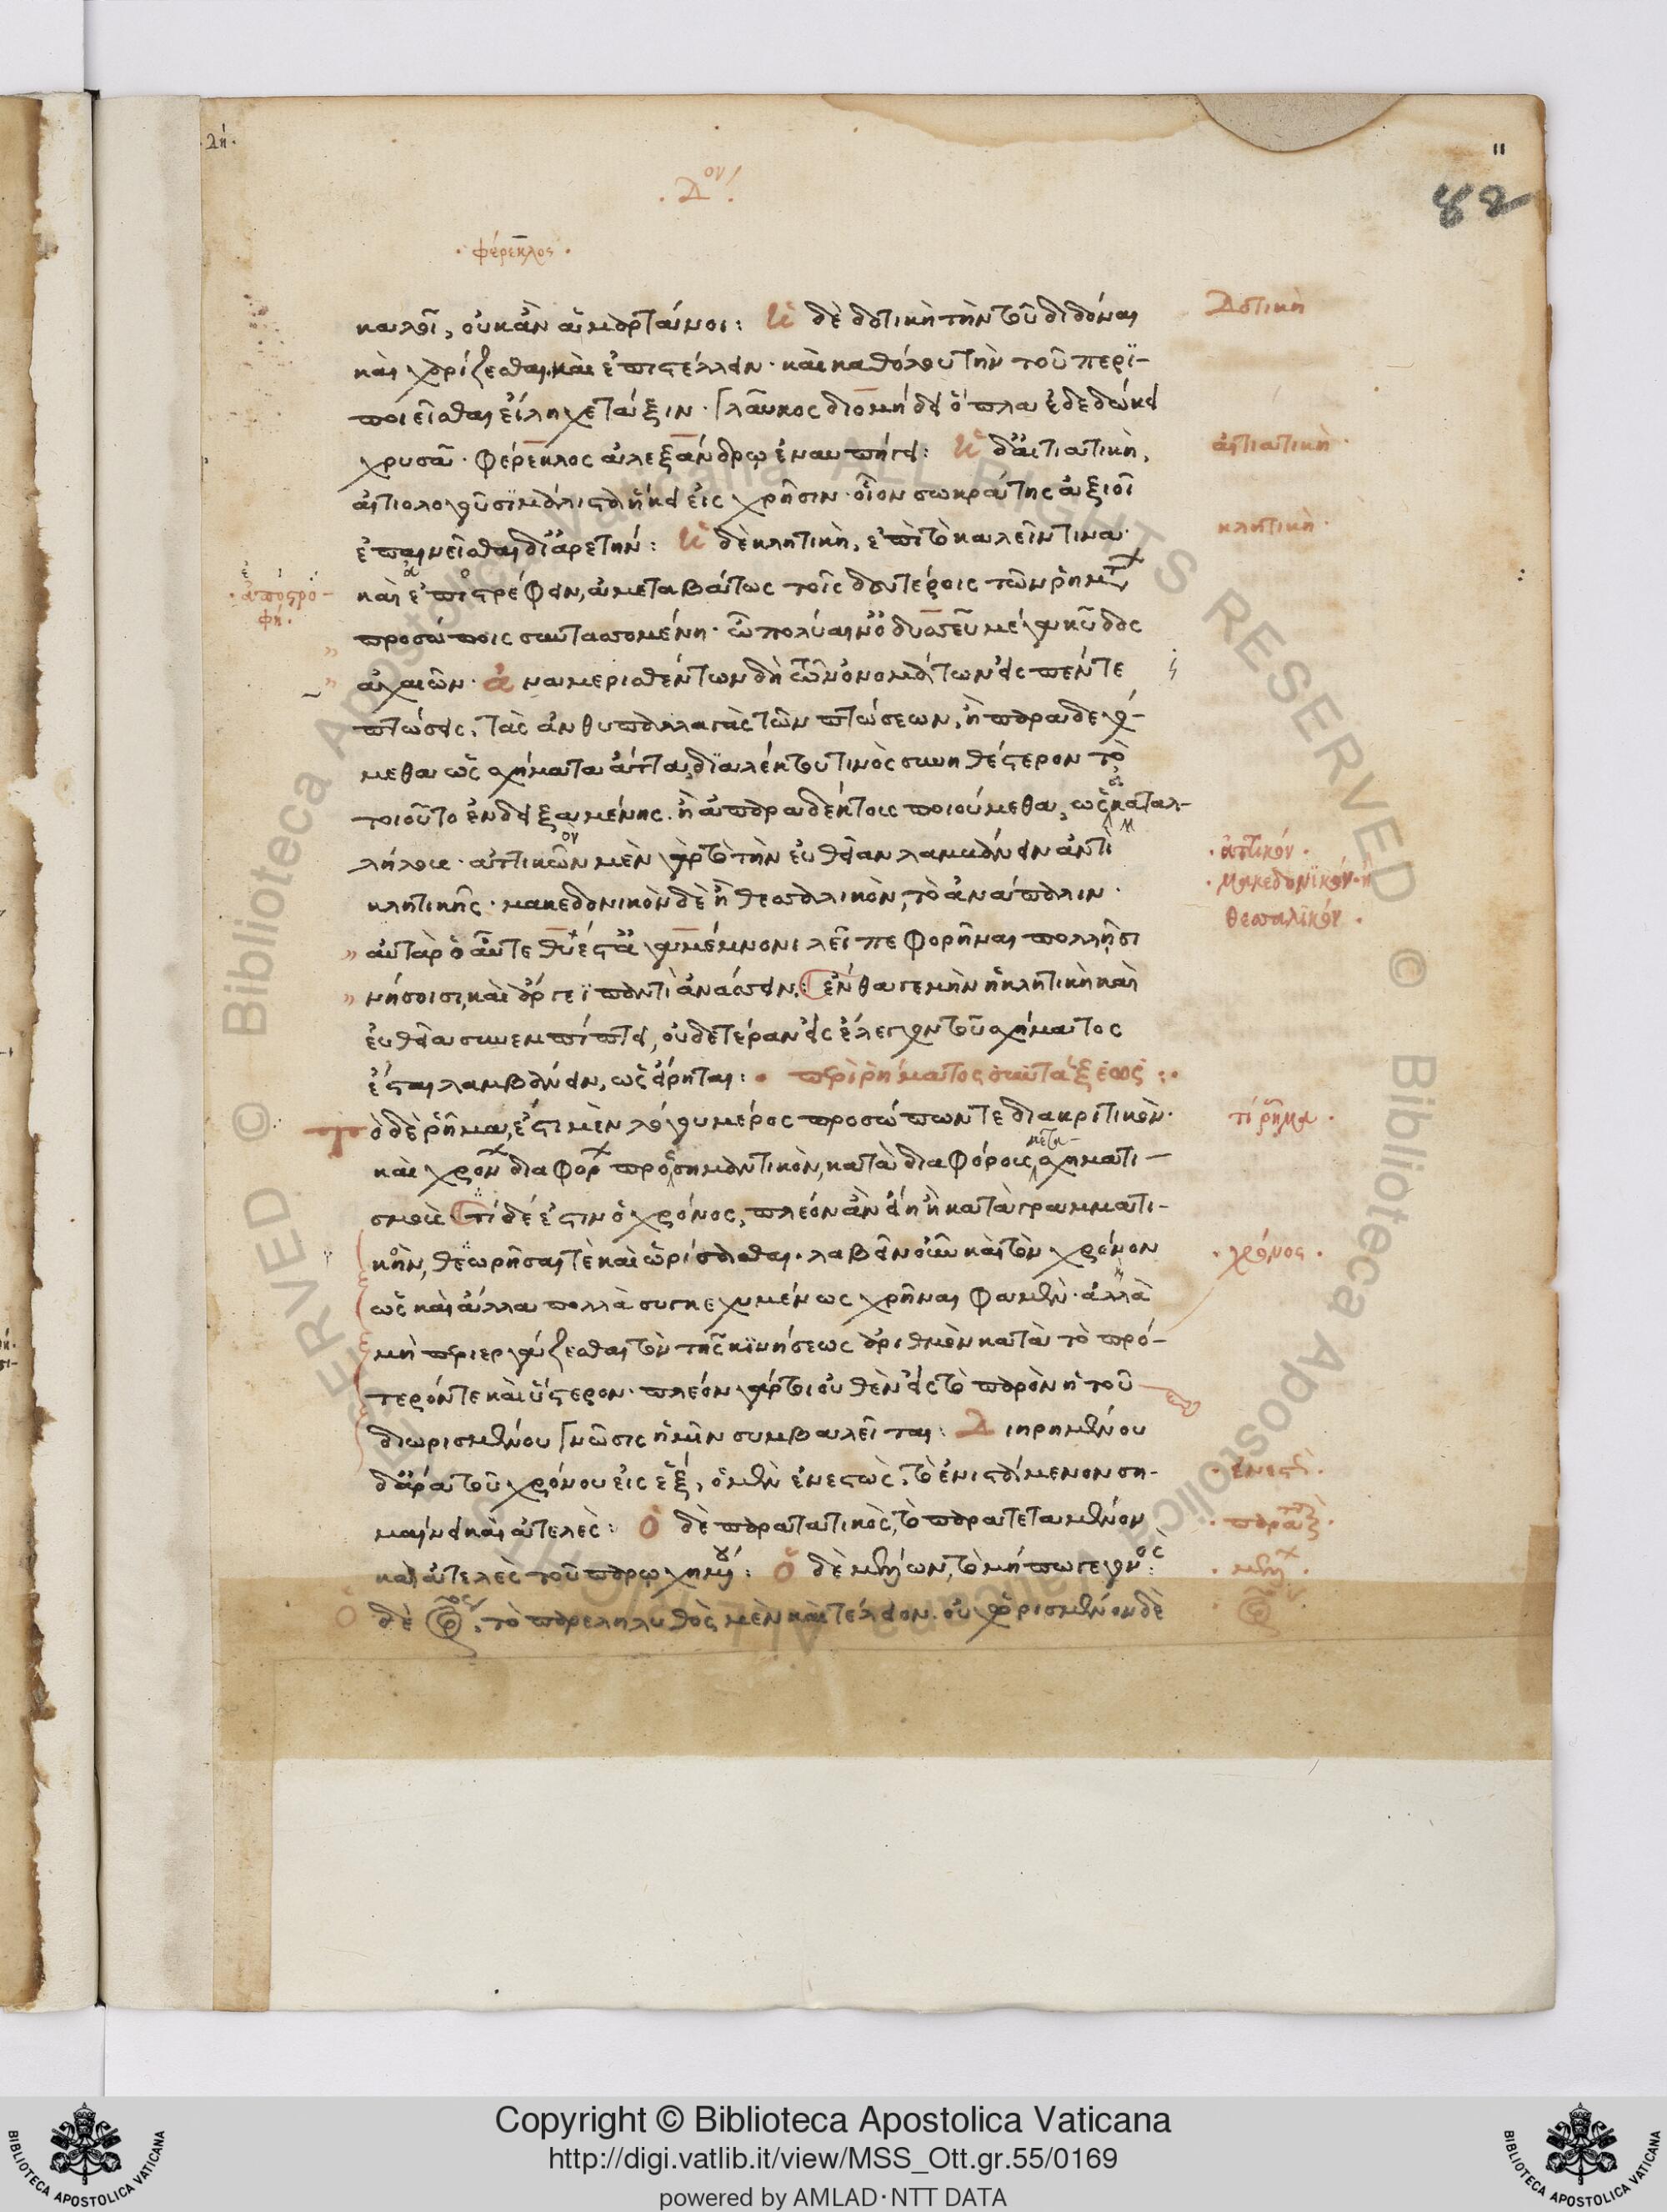 λή.
Δον
82
φέρεκλος
καλοῖ, οὐκ ἂν ἁμαρτάνοι: Ἡ δὲ δοτικὴ τὴν τοῦ διδόναι
Δοτικὴ
καὶ χαρίζεσθαι καὶ ἐπιστέλλειν· καὶ καθόλου τὴν τοῦ περι-
ποιεῖσθαι εἴληχε τάξιν· Γλαῦκος διομήδει ὅπλα ἐδεδώκει
χρυσᾶ· Φέρεκλος ἀλεξάνδρῳ ἐναυπήγει: Ἡ δ' αἰτιατικὴ,
αἰτιατικὴ·
εἰς χρῆσιν· οἷον σωκράτης ἀξιοῖ
ἐπαινεῖσθαι δι' ἀρετήν: Ἡ δὲ κλητικὴ, ἐπὶ τὸ καλεῖν τινα·
κλητικὴ·
καὶ ἐπιστρέφειν, ἀμεταβάτως τοῖς δευτέροις τῶν ῥημάτων
ἀποστρο-
φή.
προσώποις συντασσομένη· ὦ πολύαιν' ὀδυσσεῦ μέγα κῦδος
ἀχαιῶν· ἀναμερισθέντων δὴ τῶν ὀνομάτων εἰς πέντε
πτώσεις, τὰς ἀνθυπαλλαγὰς τῶν πτώσεων, ἢ παραδεχό-
μεθα ὡς σχήματα ἄττα, διαλέκτου τινὸς συνηθέστερον τὸ
τοιοῦτο ἐνδειξαμένης. ἢ ἀπαραδέκτους ποιούμεθα, ὡς ἀκαταλ-
λήλους· ἀττικὸν μὲν γὰρ τὸ τὴν εὐθεῖαν λαμβάνειν ἀντὶ
ἀττικόν·
κλητικῆς· μακεδονικὸν δὲ ἢ θεσσαλικὸν, τὸ ἀνάπαλιν·
μακεδονικόν· ἢ
θεσσαλικόν.
αὐτὰρ ὁ αὖτε θυέστ' ἀγαμέμνονι λεῖπε φορῆναι πολλῇσι
νήσοισι, καὶ ἄργεϊ παντὶ ἀνάσσειν. ἔνθα γε μὴν ἡ κλητικὴ καὶ
εὐθεῖα συνεμπίπτει, οὐδετέραν εἰς ἔλεγχον τοῦ σχήματος
ἔσται λαμβάνειν, ὡς εἴρηται: περὶ ῥήματος συντάξεως:
τὸ δὲ ῥῆμα, ἔστι μὲν λόγου μέρος προσώπων τε διακριτικὸν·
τί ῥῆμα.
καὶ χρόνων διαφορῶν προσσημαντικὸν, κατὰ διαφόρους μετασχηματι-
σμούς· τί δέ ἐστιν ὁ χρόνος, πλέον ἂν εἴη ἢ κατὰ γραμματι-
κὸν, θεωρῆσαί τε καὶ ὁρίσασθαι. λαβεῖν οὖν καὶ τὸν χρόνον
χρόνος.
ὡς καὶ ἄλλα πολλὰ συγκεχυμένως χρῆναι φαμὲν· ἀλλὰ
μὴ περιεργάζεσθαι τὸν τῆς κινήσεως ἀριθμὸν κατὰ τὸ πρό-
τερόν τε καὶ ὕστερον· πλέον γάρ τοι οὐθὲν εἰς τὸ παρὸν ἡ τοῦ
διωρισμένου γνῶσις ἡμῖν συμβαλεῖται: Διῃρημένου
δ' ἄρα τοῦ χρόνου εἰς ἓξ, ὁ μὲν ἐνεστὼς, τὸ ἐνιστάμενον ση-
ἐνεστ.
μαίνει καὶ ἀτελὲς: Ὁ δὲ παρατατικὸς, τὸ παρατεταμένον
παρατ.
καὶ ἀτελὲς τοῦ παρῳχημένου: Ὁ δὲ μέλλων, τὸ μήπω γεγονός:
μέλλων.
Ὁ δὲ ἀόριστος, τὸ παρεληλυθὸς μὲν καὶ τέλειον. οὐχ ὡρισμένον δὲ
Copyright © Biblioteca Apostolica Vaticana
http://digi.vatlib.it/view/MSS_Ott.gr.55/0169
powered by AMLAD·NTT DATA
BIBLIOTECA APOSTOLICA VATICANA
BIBLIOTECA APOSTOLICA VATICANA